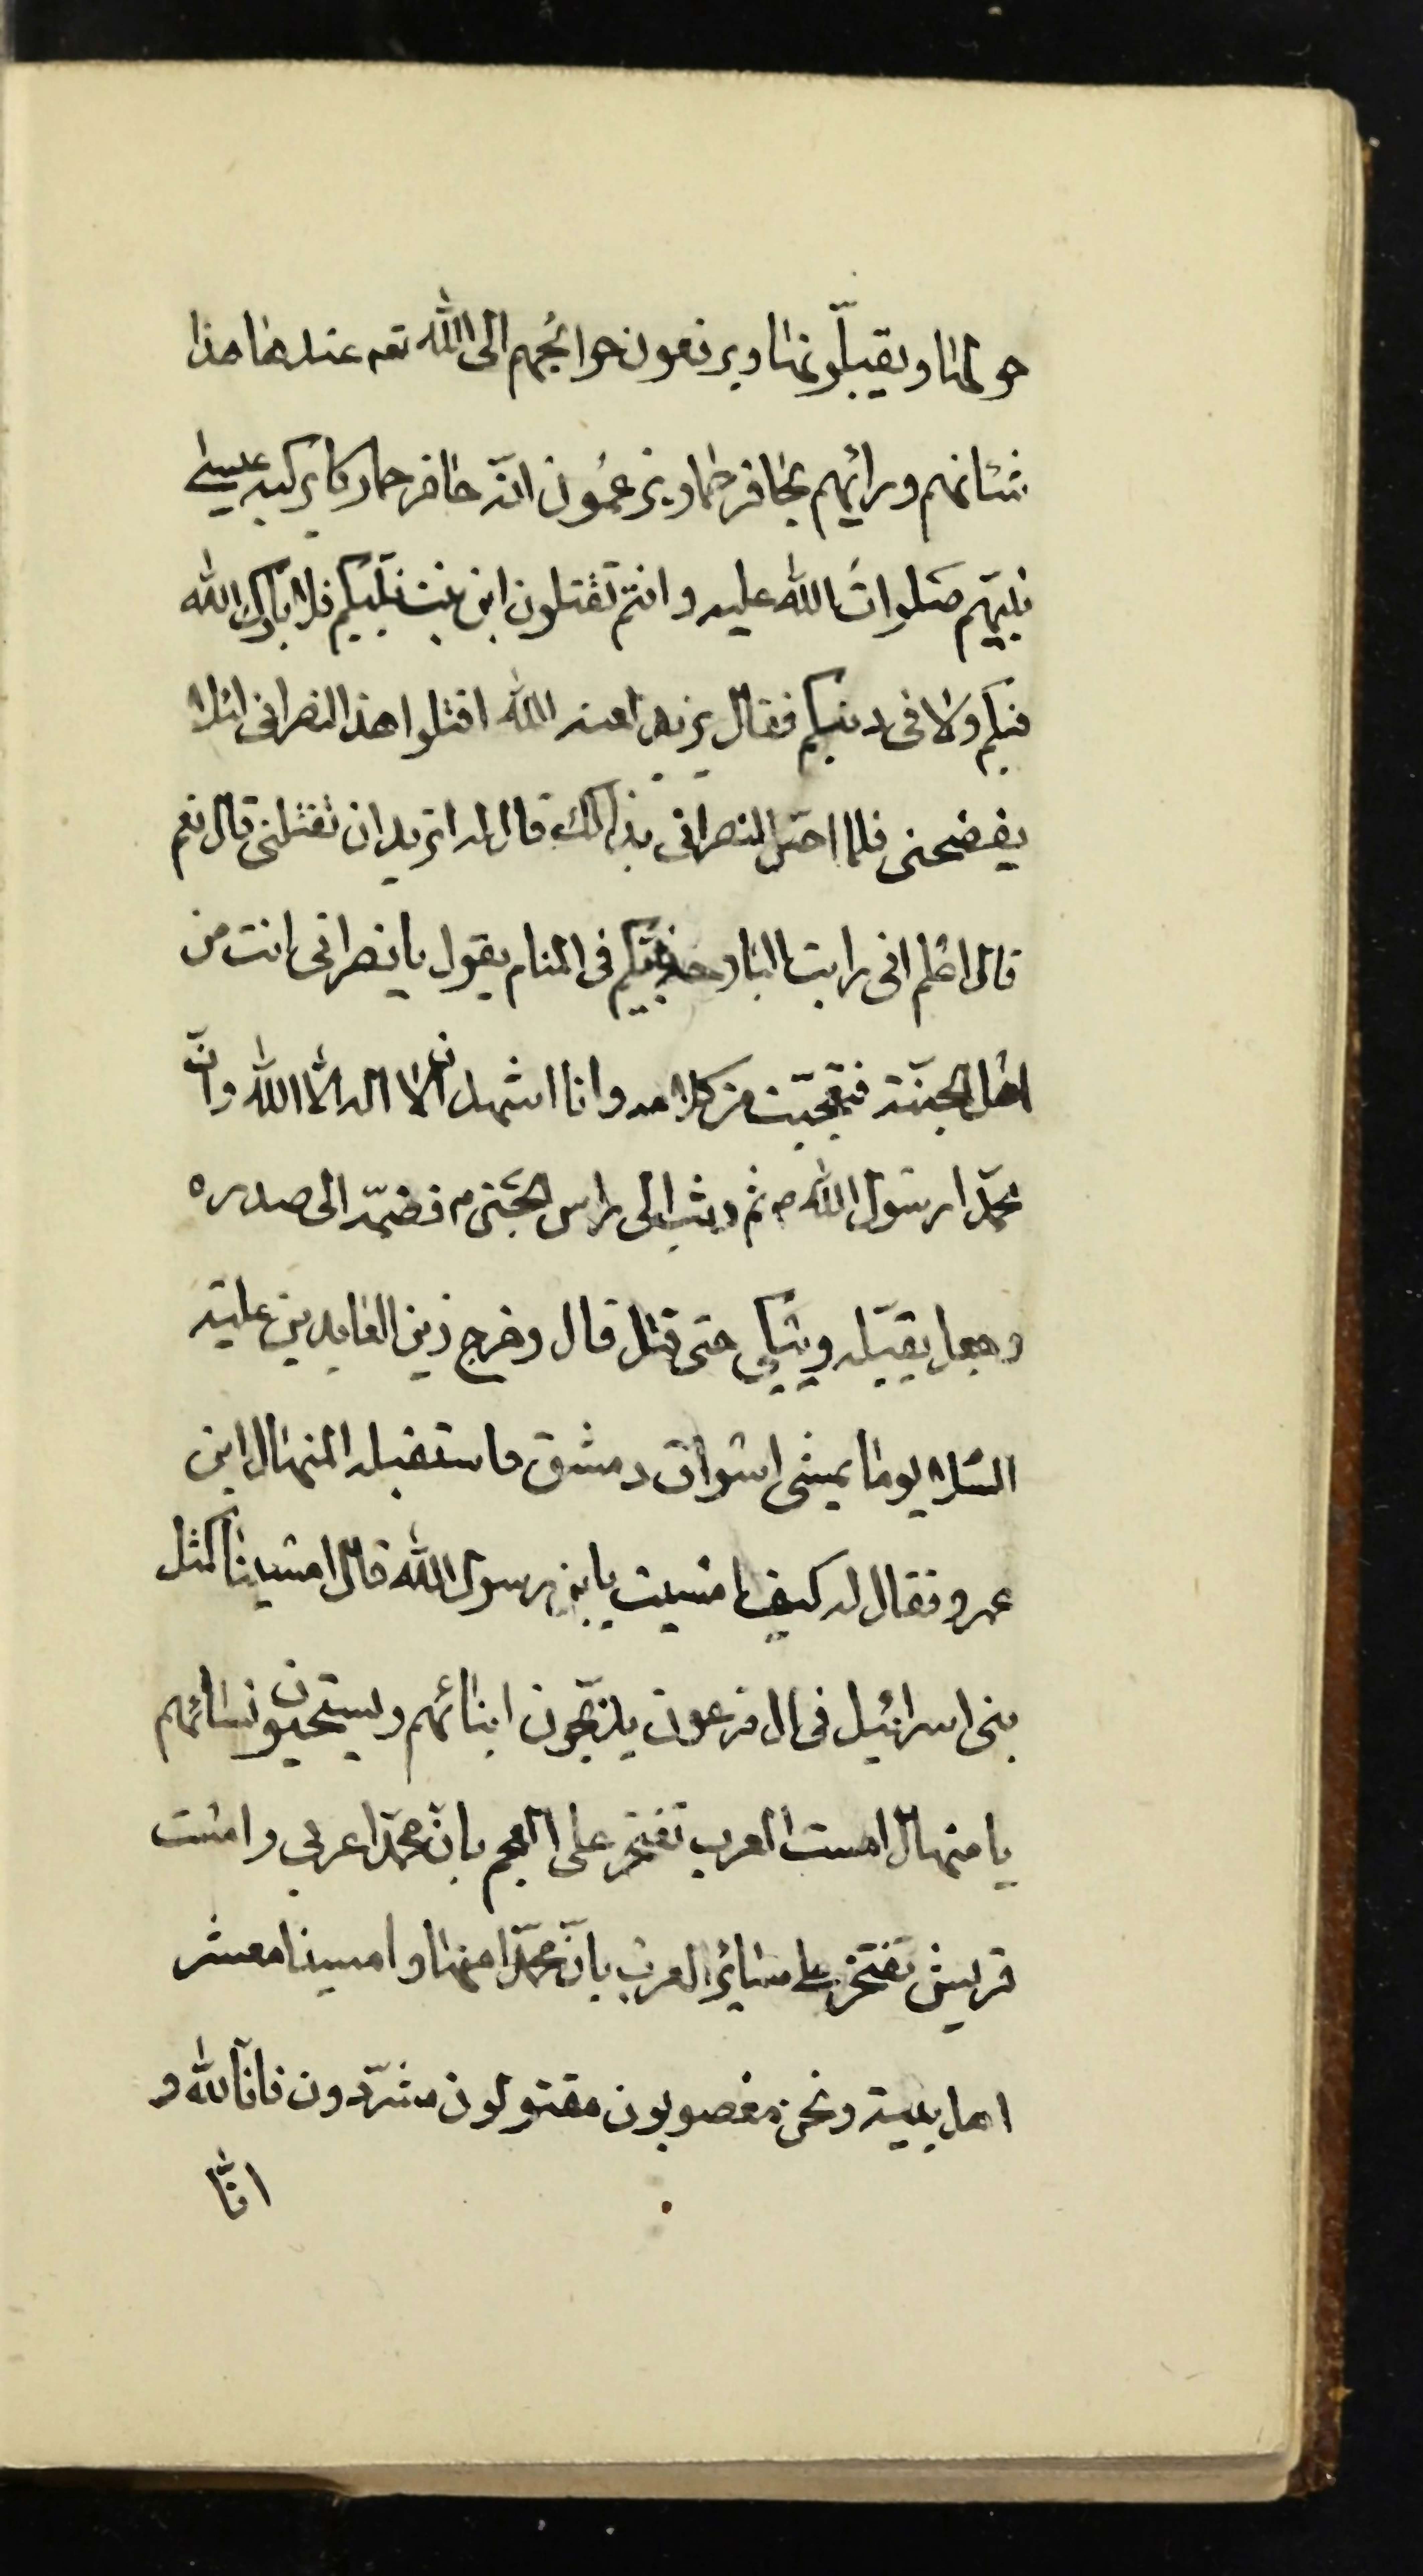 حولها ويقبلّونها ويرفعون حوائجهم الى الله تعه عندها هذا
شانهم ورائهم بحافر حمار يزعمون انّه حافر حمار كا يركبه عيسى
نبيّهم صلوات الله عليه وانتم تقتلون ابن بنت نبيّكم فلا بارك الله
فيكم ولا فى دينكم فقال يزيد لعنه الله اقتلوا هذا النصرانى لئلا
يفضحنى فلما احسّ النصرانى بذالك قال له اتريد ان تقتلنى قال نعم
قال اعلم انى رايت البارحة نبيّكم فى المنام يقول يا نصرانى انت من
اهل الجنّة فتعجّبت من كلامه وانا اشهد ان لا اله الّا الله وانّ
محمّدا رسول الله ص ثم وثب الى راس الحسين م فضمّه الى صدره
وجعل يقبّله ويبكى حتى قتل قال وخرج زين العابدين عليه
السلا يوما يمشى اسواق دمشق فاستقبله المنهال ابن
عمرو فقال له كيف امسيت يابن رسول الله قال امسينا كمثل
بنى اسرائيل فى ال فرعون يذبّحون ابنائهم ويستحيون نسائهم
يا منهال امست العرب تفتخر على العجم بانّ محمّدا عربى وامست
قريش تفتخر على سائر العرب بانّ محمّدا منها وامسينا معشر
اهل بيته ونحن مغصوبون مقتولون مشرّدون فانّا لله و
انّا